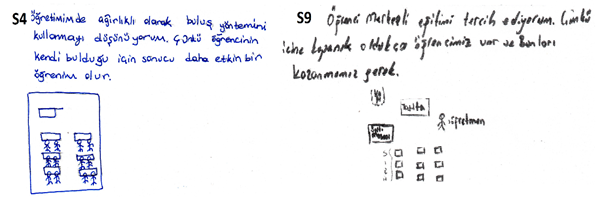 S4 Öğretimimde ağırlıklı olarak buluş yöntemini
kullanmayı düşünüyorum. Çünkü öğrencinin
kendi bulduğu için sonucu daha etkin bir
öğrenim olur.
S9 Öğrenci Merkezli eğitimi tercih ediyorum. Çünkü
içine kapanık oldukça öğrencimiz var ve bunları
kazanmamız gerek.
Tahta
öğretmen